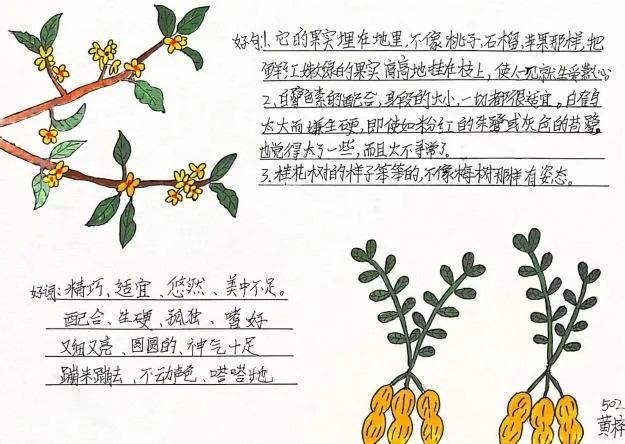 好句1、它的果实埋在地里,不像桃子、石榴、苹果那样,把
鲜红嫩绿的果实高高地挂在枝上,使人一见就生爱慕心
2、白鹭色素的配合,身段的大小,一切都很适宜。白鹤
太大而嫌生硬,即使如粉红的朱鹭或灰色的苍鹭,
也觉得大了一些,而且太不寻常了。
3、桂花树的样子笨笨的,不像梅树那样有姿态。
好词:精巧、适宜、悠然、美中不足。
配合、生硬、孤独、嗜好
又细又亮、圆圆的、神气十足
蹦来蹦去、不动声色、嗒嗒地
502
黄梓